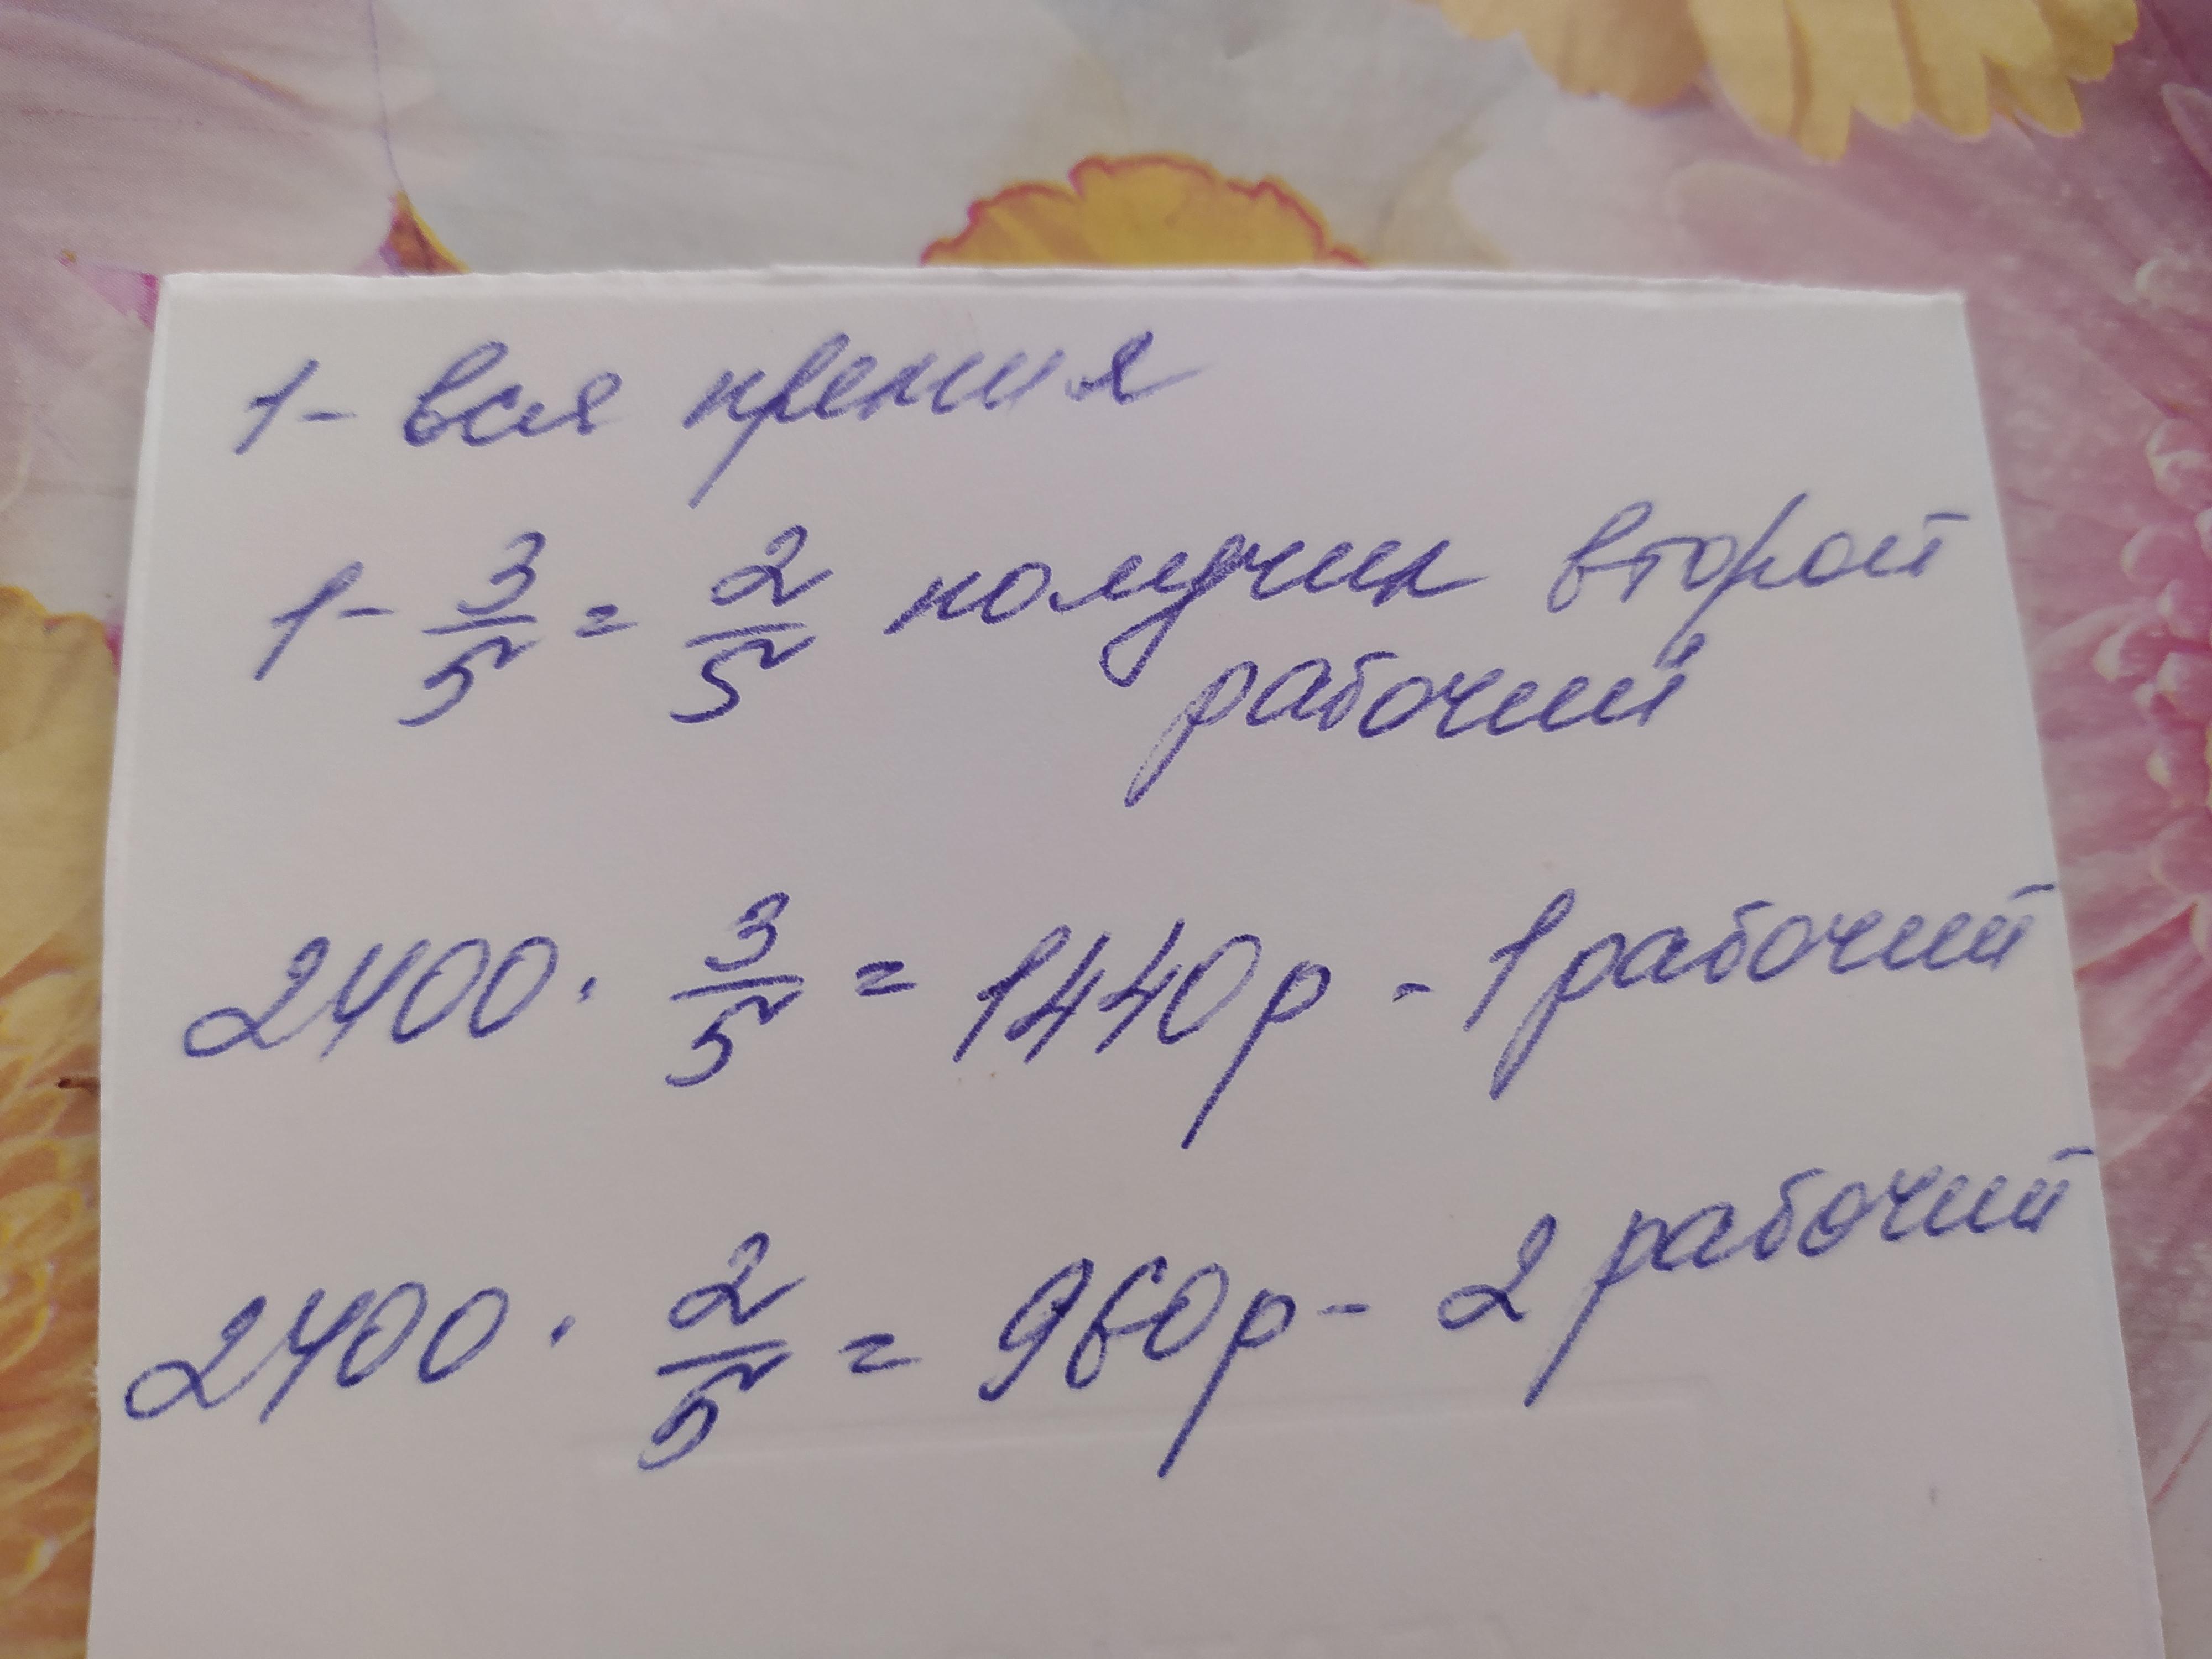 1 - вся премия
1 - 3/5 = 2/5 получил второй
рабочий
2400 · 3/5 = 1440 р - 1 рабочий
2400 · 2/5 = 960 р - 2 рабочий